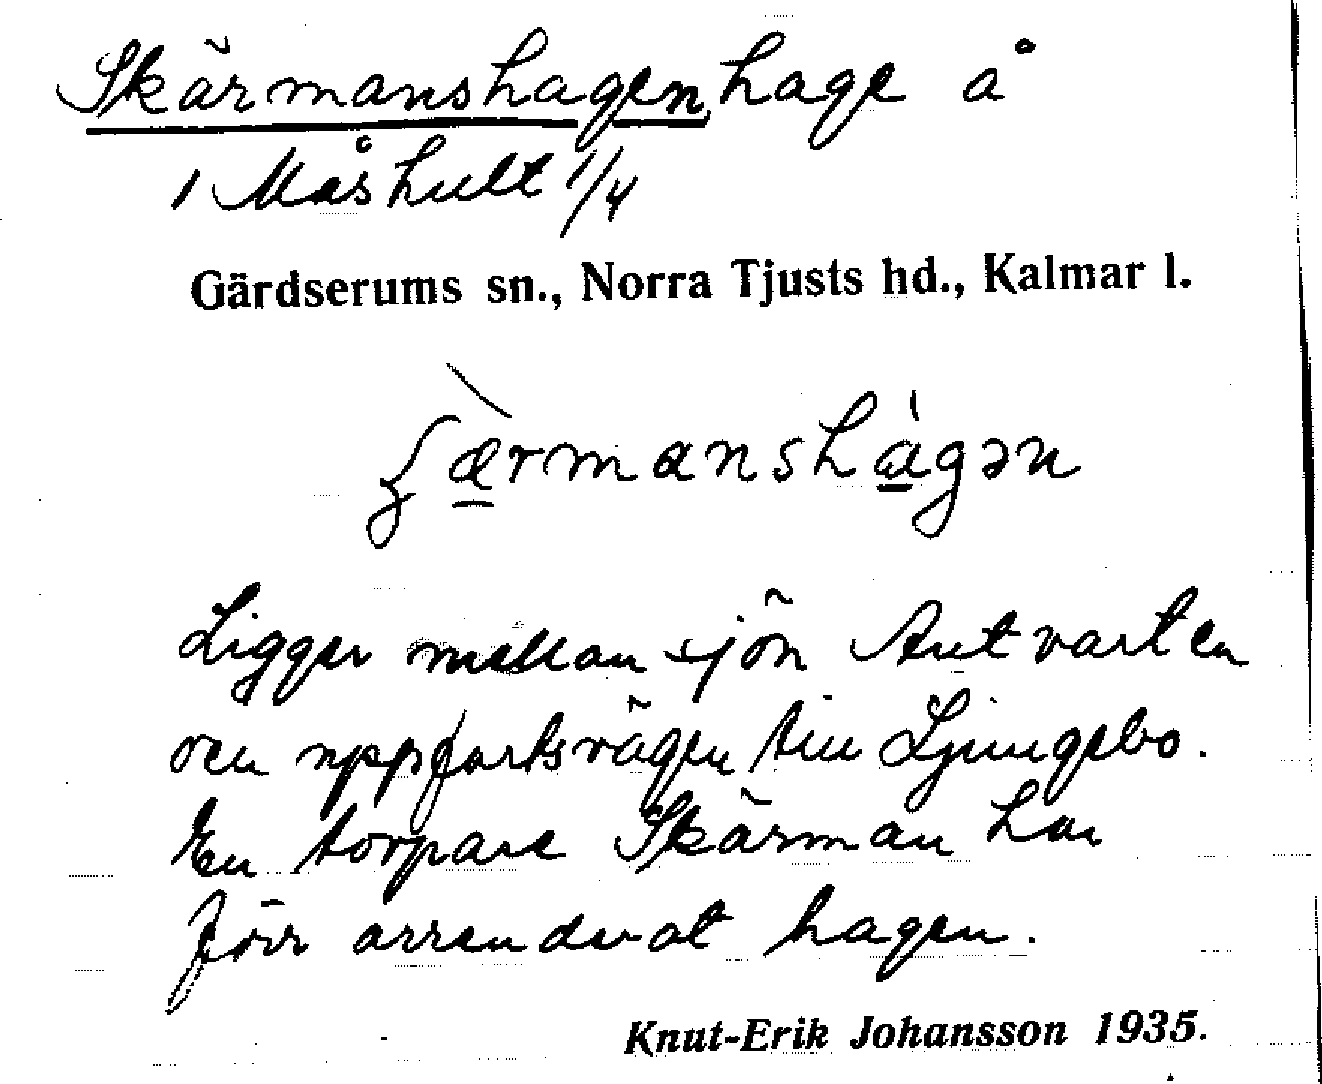 Skärmanshagen, hage å
1 Måshult 1/4
Gärdserums sn., Norra Tjusts hd., Kalmar l.
ʃæ̀rmanshàgən
Ligger mellan sjön Antvarten
och uppfartsvägen till Ljungebo.
En torpare Skärman har
förr arrenderat hagen.
Knut-Erik Johansson 1935.